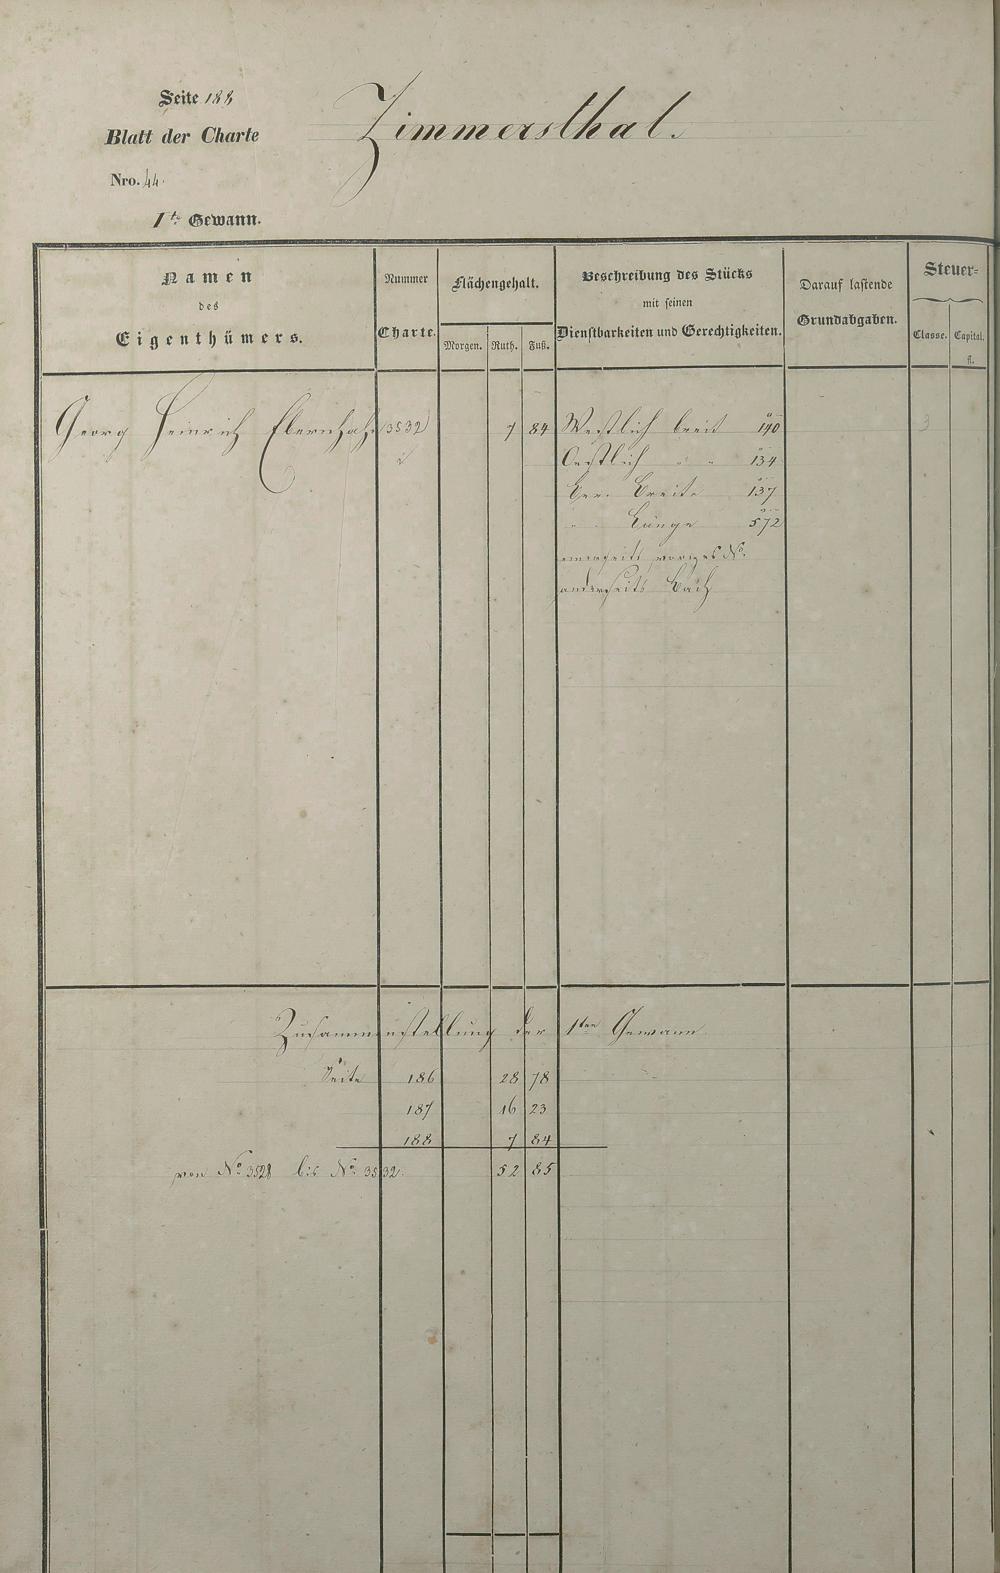 Seite 188
Zimmersthal.
Blatt der Charte
Nro. 44.
1te Gewann.
Namen
des
Eigenthümers.
Nummer
Charte.
Flächengehalt.
Morgen. Ruth. Fuß.
Beschreibung des Stücks
mit seinen
Dienstbarkeiten und Gerechtigkeiten.
Darauf lastende
Grundabgaben.
Steuer-
Classe. Capital.
fl.
Georg Heinrich 3532 7 84 Westlich breit 140
Oestlich " " 134
Ger. Breite 137
" Länge 572
einerseits voriges No.
anderseits Bach
3
Zusammenstellung der 1ten Gewann
Seite 186 28 78
187 16 23
188 7 84
von No 3528 bis No 3532. 52 85